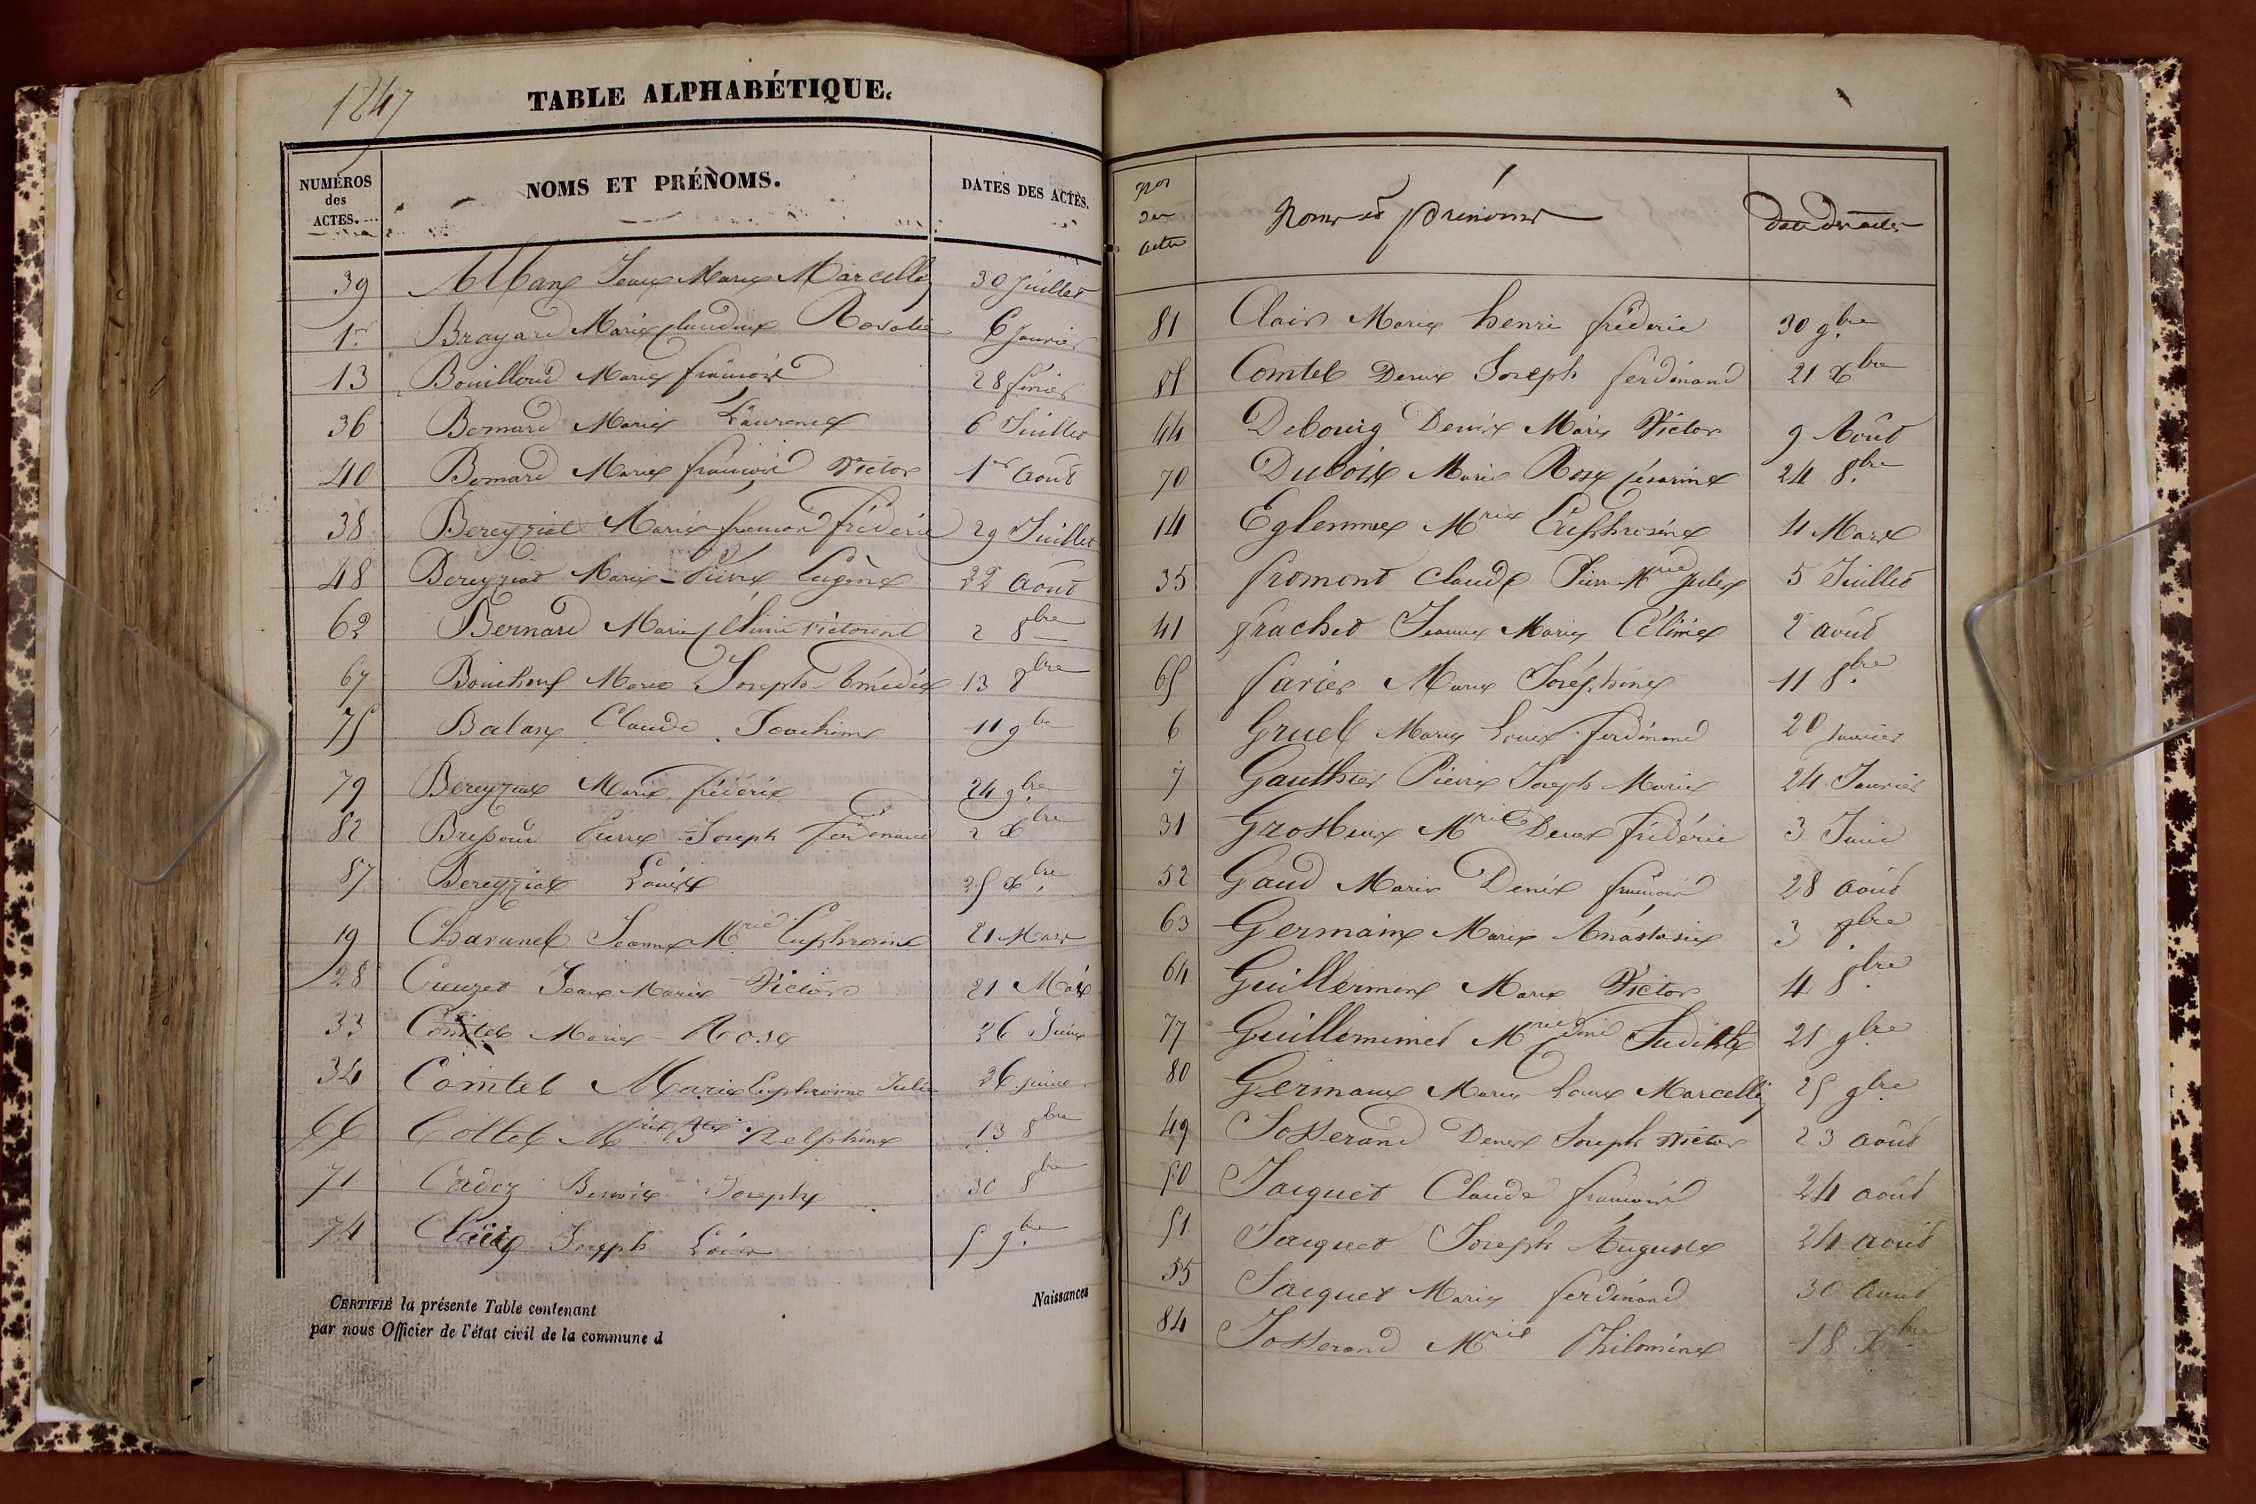 1247
TABLE ALPHABÉTIQUE.
NUMÉROS des ACTES. NOMS ET PRÉNOMS. DATES DES ACTES.
39 Alban Jean Marie Marcelly 30 Juillet
1er Brayard Marie Claudine Rosalie 6 Janvier
13 Bouilloud Marie françois 28 févier
36 Bernard Marie Laurence 6 Juillet
40 Bernard Marie françois Victor 1er août
38 Bereyziat Marie françois frédéric 29 Juillet
48 Bereyziat Marie-Pierre Eugène 22 Août
62 Bernard Marie Victorine 2 8bre
67 Bouchoux Marie Joseph Amédée 13 8bre
75 Balan Claude Joachim 11 9bre
79 Bereyziat Marie frédéric 24 9bre
82 Bressoud Pierre Joseph ferdinand 2 Xbre
87 Bereyziat Louise 25 Xbre
19 Chavanel Jeanne Mrie Euphrosine 21 Mars
28 Creuzet Jean Marie Victor 21 Mai
33 Comtet Marie-Rose 26 Juin
34 Comtet Marie Euphrosine Julie 26 juin
66 Cottet Mrie Delphine 13 8bre
71 Cadoz Benoit Joseph 30 8bre
74 Clair Joseph Louis 5 9bre
CERTIFIÉ la présente Table contenant Naissances
par nous Officier de l'état civil de la commune d
Nos des actes Noms et prénoms date des actes
81 Clair Marie henri fréderic 30 9bre
85 Comtet Denis Joseph ferdinand 21 Xbre
44 Debourg Denis Marie Victor 9 Août
70 Dubois Marie Rose césarine 24 8bre
14 Eglemme Mrie Euphrosine 4 Mars
35 fromont Claude Pierre Mrie Jules 5 Juillet
41 frachet Jeanne Marie Céline 2 août
65 farier Marie Joséphine 11 8bre
6 Gruel Marie Louis ferdinand 20 Janvier
7 Gauthier Pierre Joseph Marie 24 Janvier
31 Grosteux Mrie Denis frédéric 3 Juin
52 Gaud Marie Denis françois 28 août
63 Germain Marie Anastasie 3 8bre
64 Guillermin Marie Victor 4 8bre
77 Guilleminet Mrie Judith 21 9bre
80 Germain Marie Louis Marcelly 25 9bre
49 Josserand Denis Joseph Victor 23 août
50 Jacquet Claude françois 24 août
51 Jacquet Joseph Auguste 24 août
55 Jacquet Marie ferdinand 30 août
84 Josserand Mrie Philomène 18 Xbre